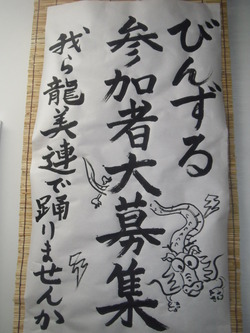 びんずる
参加者大募集
我ら龍美連で踊りませんか